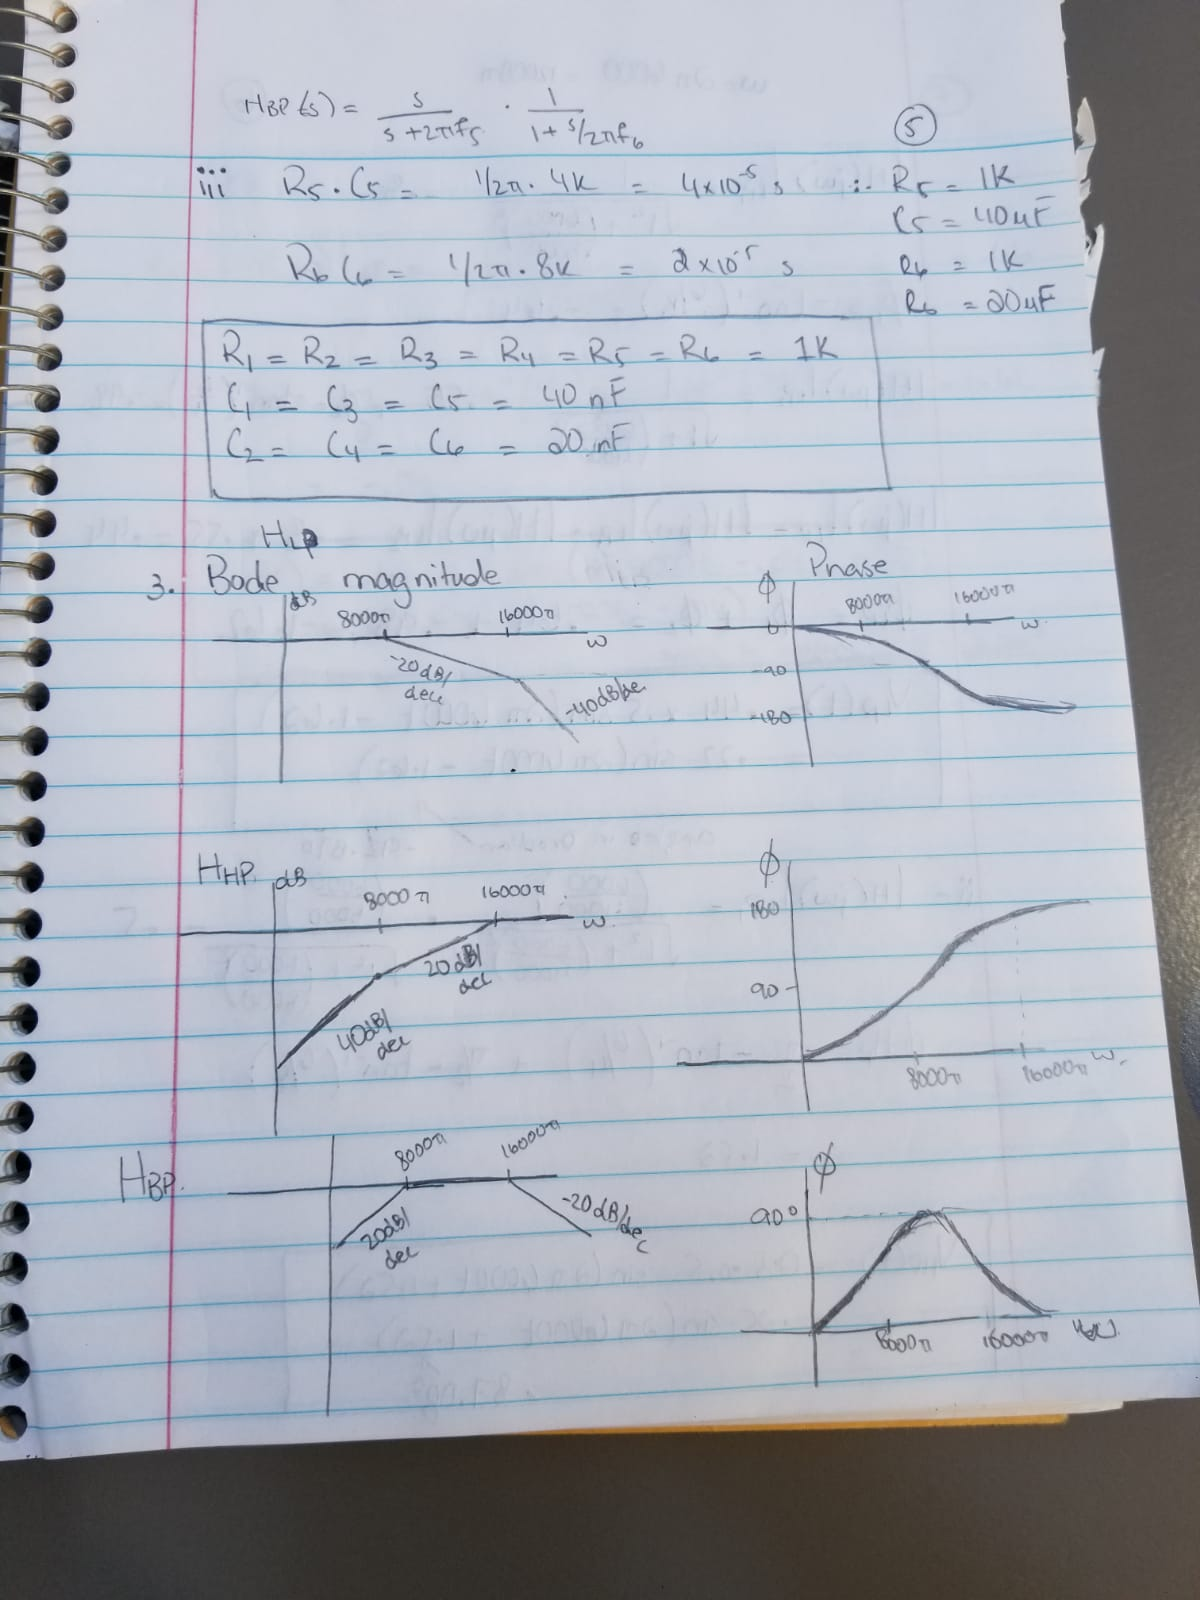 H_BP(s) = s / (s + 2πf₅) · 1 / (1 + s/2πf₆)
⑤
iii R₅·C₅ = 1/2π·4K = 4×10⁻⁵ s ∴ R₅ = 1K
C₅ = 40uF
R₆C₆ = 1/2π·8K = 2×10⁻⁵ s R₆ = 1K
R₆ = 20uF
R₁ = R₂ = R₃ = R₄ = R₅ = R₆ = 1K
C₁ = C₃ = C₅ = 40 nF
C₂ = C₄ = C₆ = 20 nF
H_LP
3. Bode magnitude
dB
8000π 16000π
w
-20dB/
dec
-40dB/dec
Phase
ϕ
8000π 16000π
0 w
-90
-180
H_HP dB
8000π 16000π
w
20dB/
dec
40dB/
dec
ϕ
180
90
8000π 16000π w
H_BP.
8000π 16000π
20dB/
dec
-20dB/dec
ϕ
90°
8000π 16000π